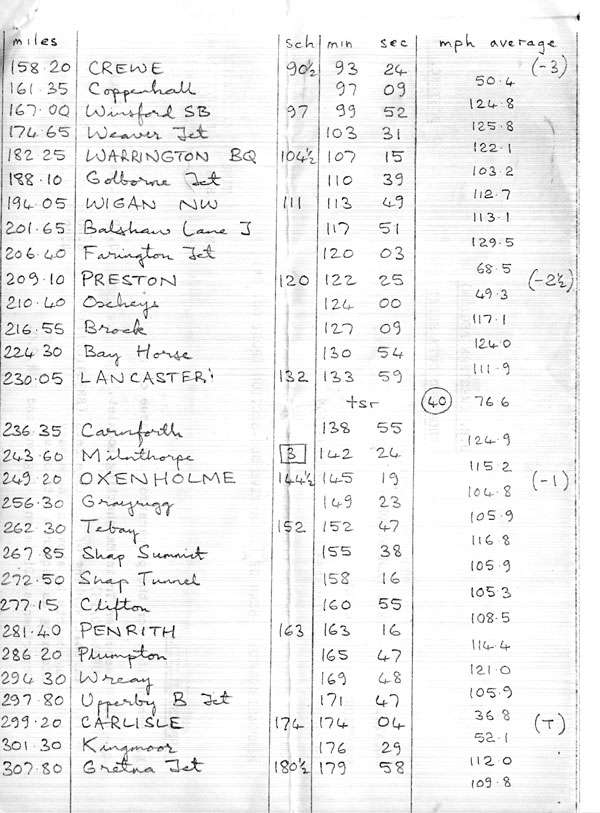 miles sch min sec mph average
158·20 CREWE 90½ 93 24 (-3)
50·4
161·35 Coppenhall 97 09
124·8
167·00 Winsford SB 97 99 52
125·8
174·65 Weaver Jct 103 31
122·1
182 25 WARRINGTON BQ 104½ 107 15
103·2
188·10 Golborne Jct 110 39
112·7
194·05 WIGAN NW 111 113 49
113·1
201·65 Balshaw Lane J 117 51
129·5
206·40 Farington Jct 120 03
68·5
209·10 PRESTON 120 122 25 (-2½)
49·3
210·40 Oxheys 124 00
117·1
216·55 Brock 127 09
124·0
224 30 Bay Horse 130 54
111·9
230·05 LANCASTER 132 133 59
tsr 40 76·6
236·35 Carnforth 138 55
124·9
243·60 Milnthorpe 3 142 24
115·2
249·20 OXENHOLME 144½ 145 19 (-1)
104·8
256·30 Grayrigg 149 23
105·9
262 30 Tebay 152 152 47
116·8
267·85 Shap Summit 155 38
105·9
272·50 Shap Tunnel 158 16
105·3
277·15 Clifton 160 55
108·5
281·40 PENRITH 163 163 16
114·4
286 20 Plumpton 165 47
121·0
294 30 Wreay 169 48
105·9
297·80 Upperby B Jct 171 47
36·8
299·20 CARLISLE 174 174 04 (T)
52·1
301·30 Kingmoor 176 29
112·0
307·80 Gretna Jct 180½ 179 58
109·8